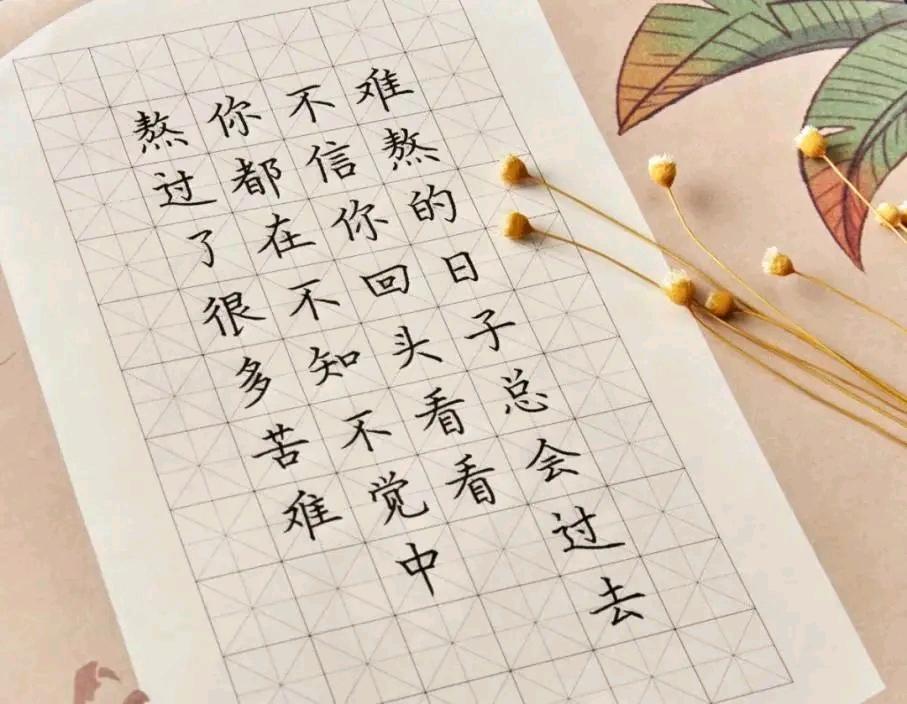 难熬的日子总会过去
不信你回头看看
你都在不知不觉中
熬过了很多苦难